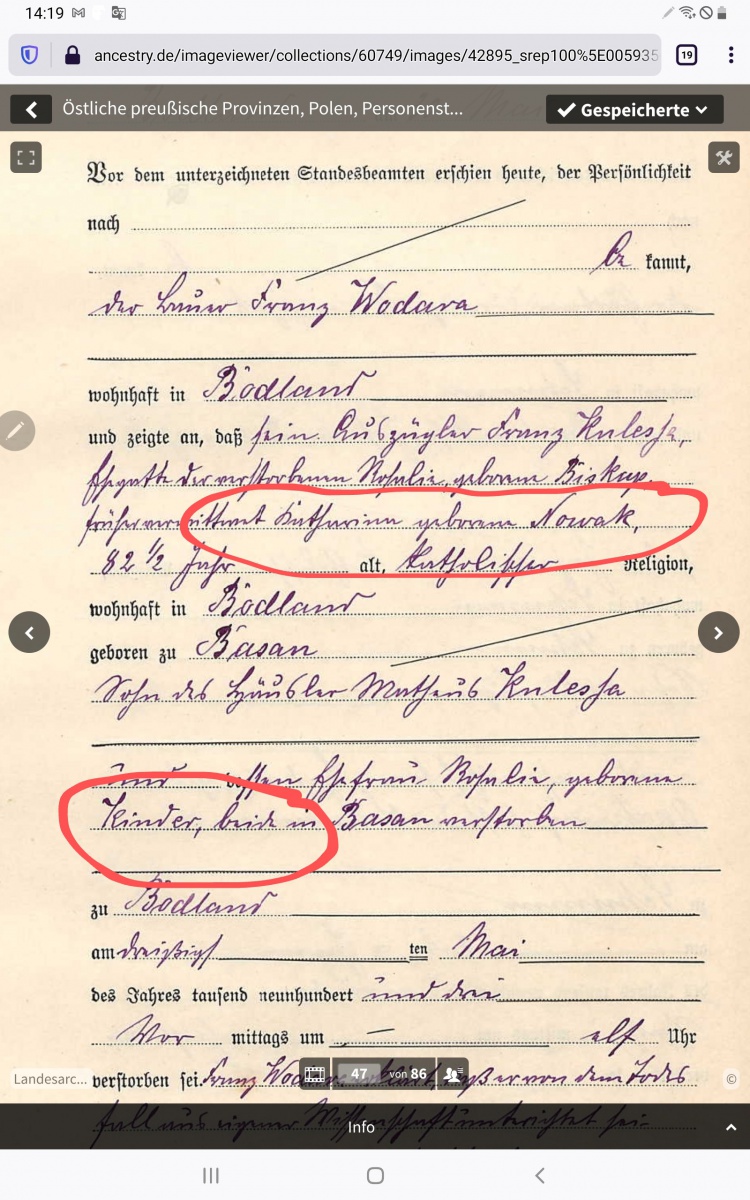 14:19
19
ancestry.de/imageviewer/collections/60749/images/42895_srep100%5E005935
Östliche preußische Provinzen, Polen, Personenst...
Gespeicherte
Vor dem unterzeichneten Standesbeamten erschien heute, der Persönlichkeit
nach
be kannt,
der Bauer Franz Wodara
wohnhaft in Bodland
und zeigte an, daß sein Auszügler Franz Kulessa,
Ehegatte der verstorbenen Rosalie, geborene Biskup,
früher verwittwet Katharina geborene Nowak,
82 1/2 Jahr alt, katholischer Religion,
wohnhaft in Bodland
geboren zu Basan
Sohn des Häusler Matheus Kulessa
und dessen Ehefrau Rosalie, geborene
Kinder, beide in Basan verstorben
zu Bodland
am dreißigs ten Mai
des Jahres tausend neunhundert und drei
Vor mittags um elf Uhr
verstorben sei. Franz daß er von dem Todes
fall aus eigener Wissenschaft unterrichtet sei.
Landesarc...
47 von 86
©
Info